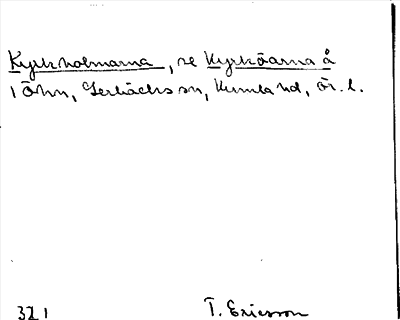 Kyrkholmarna, se Kyrköarna å
1 Öhn, Gerbäcks sn, Kumla hd, Ör. l.
321 T. Ericsson